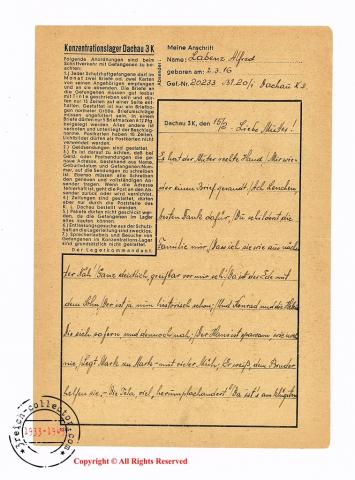 Konzentrationslager Dachau 3 K
Folgende Anordnungen sind beim
Schriftverkehr mit Gefangenen zu be-
achten:
1.) Jeder Schutzhaftgefangene darf im
Monat zwei Briefe od. zwei Karten
von seinen Angehörigen empfangen
und an sie absenden. Die Briefe an
die Gefangenen müssen gut lesbar
mit Tinte geschrieben sein und dür-
fen nur 15 Zeilen auf einer Seite ent-
halten. Gestattet ist nur ein Briefbo-
gen normaler Größe. Briefumschläge
müssen ungefüttert sein. In einem
Briefe dürfen nur 5 Briefmarken à 12 Pfg.
beigelegt werden. Alles andere ist
verboten und unterliegt der Beschlag-
nahme. Postkarten haben 10 Zeilen.
Lichtbilder dürfen als Postkarten nicht
verwendet werden.
2.) Geldsendungen sind gestattet.
3.) Es ist darauf zu achten, daß bei
Geld- oder Postsendungen die ge-
naue Adresse, bestehend aus Name,
Geburtsdatum und Gefangenen-Num-
mer, auf die Sendungen zu schreiben
ist.
4.) Zeitungen sind gestattet, dürfen
aber nur durch die Poststelle des
K. L. Dachau bestellt werden.
5.) Pakete dürfen nicht geschickt wer-
den, da die Gefangenen im Lager
alles kaufen können.
6.) Entlassungsgesuche aus der Schutz-
haft an die Lagerleitung sind zwecklos.
7.) Sprecherlaubnis und Besuche von
Gefangenen im Konzentrations-Lager
sind grundsätzlich nicht gestattet.
Der Lagerkommandant.
Absender:
Meine Anschrift
Name: Labenz Alfred
geboren am: 2.3.16
Gef.-Nr. 20233 Dachau K 3.
Dachau 3 K, den Liebe Mutter!
Es hat der Mutter rechte Hand / Mir wie-
der einen Brief gesandt. / Ach herzchen,
besten Dank dafür, / Du schilderst die
Familie mir, / Dass ich sie wie aus näch-
ster Näh' / Ganz deutlich, greifbar vor mir seh. / Da ist der Ede mit
dem Sohn, / Der ist ja nun historisch schon; / Und Konrad und die
Die sich so fern und dennoch nah; / Der Hans ist sparsam, wie noch
nie, / Legt Mark zu Mark - mit vieler Müh, / Er weiß, dem Bruder
helfen sie. - Die viel / Da ist's am klügsten
3reich-collector.com
1933-1945
Copyright © All Rights Reserved